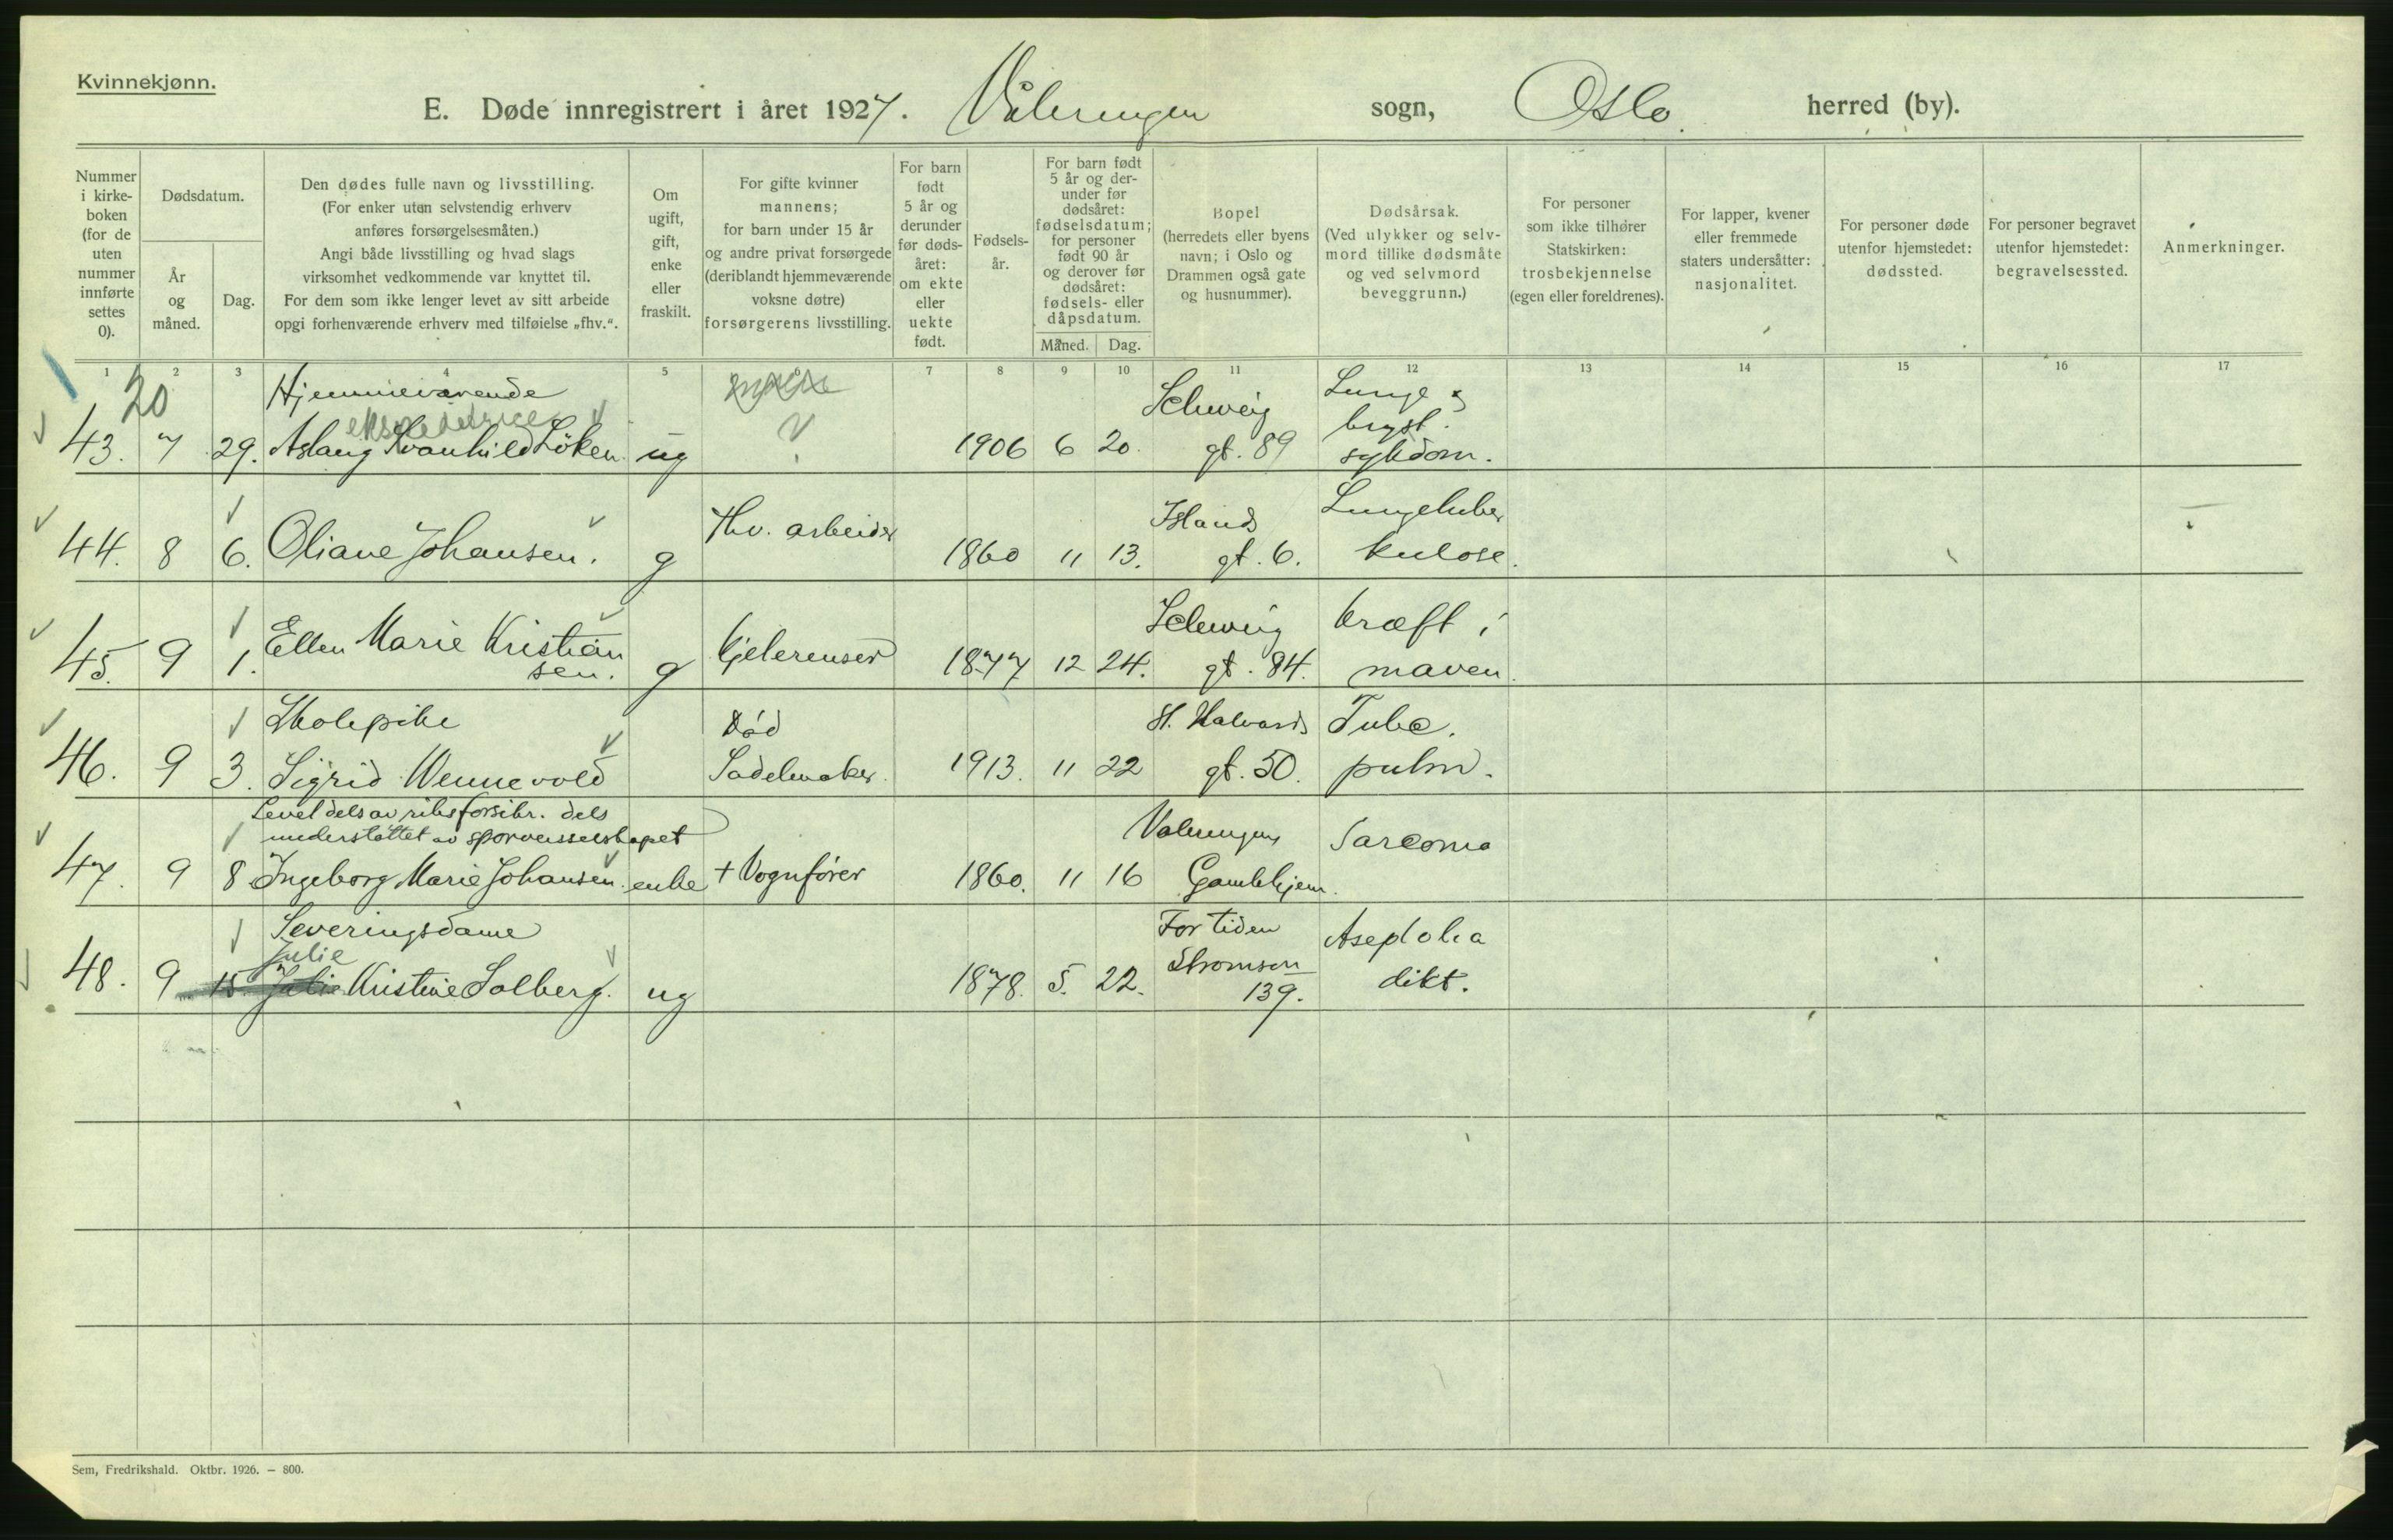 Kvinnekjønn.
E. Døde innregistrert i året 1927. Våleringen sogn, Oslo herred (by).
Nummer i kirke- boken (for de uten nummer innførte settes 0).
Dødsdatum.
År og måned.
Dag.
Den dødes fulle navn og livsstilling.
(For enker uten selvstendig erhverv
anføres forsørgelsesmåten.)
Angi både livsstilling og hvad slags
virksomhet vedkommende var knyttet til.
For dem som ikke lenger levet av sitt arbeide
opgi forhenværende erhverv med tilføielse „fhv.“.
Om ugift, gift, enke eller fraskilt.
For gifte kvinner
mannens;
for barn under 15 år
og andre privat forsørgede
(deriblandt hjemmeværende
voksne døtre)
forsørgerens livsstilling.
For barn født 5 år og derunder før døds- året: om ekte eller uekte født.
Fødsels- år.
For barn født 5 år og der- under før dødsåret: fødselsdatum; for personer født 90 år og derover før dødsåret: fødsels- eller dåpsdatum.
Måned. Dag.
Bopel
(herredets eller byens
navn; i Oslo og
Drammen også gate
og husnummer).
Dødsårsak.
(Ved ulykker og selv-
mord tillike dødsmåte
og ved selvmord
beveggrunn.)
For personer
som ikke tilhører
Statskirken:
trosbekjennelse
(egen eller foreldrenes).
For lapper, kvener
eller fremmede
staters undersåtter:
nasjonalitet.
For personer døde
utenfor hjemstedet:
dødssted.
For personer begravet
utenfor hjemstedet:
begravelsessted.
Anmerkninger.
1 2 3 4 5 7 8 9 10 11 12 13 14 15 16 17
20 Hjemmeværende Schweig Lunge &
bryst.
43. 7 29. Aslaug Svanhild Löken ug ? 1906 6 20. gt. 89 sykdom.
Fhv. arbeider Islands Lungetuber
44. 8 6. Oliane Johansen. g 1860 11 13. gt. 6. kulose.
Ellen Marie Kristian Schweig kræft i
45. 9 1. sen. g Gjelerenser 1877 12 24. gt. 84. maven.
Skolepike Död St. Halvards Tube.
46. 9 3. Sigrid Wennevold Sadelmaker. 1913. 11 22 gt. 50. pulm.
Levet dels av dels
understöttet av sporveisselskapet Valerengens Sarcoma
47. 9 8. Ingeborg Marie Johansen. enke + Vognförer 1860. 11 16 Gamlehjem.
Severingsdame For tiden
Julie Stromsvn
48. 9 15 Julie Kristine Solberg. ug 1878. 5. 22. 139. dikt.
Sem, Fredrikshald. Oktbr. 1926. — 800.